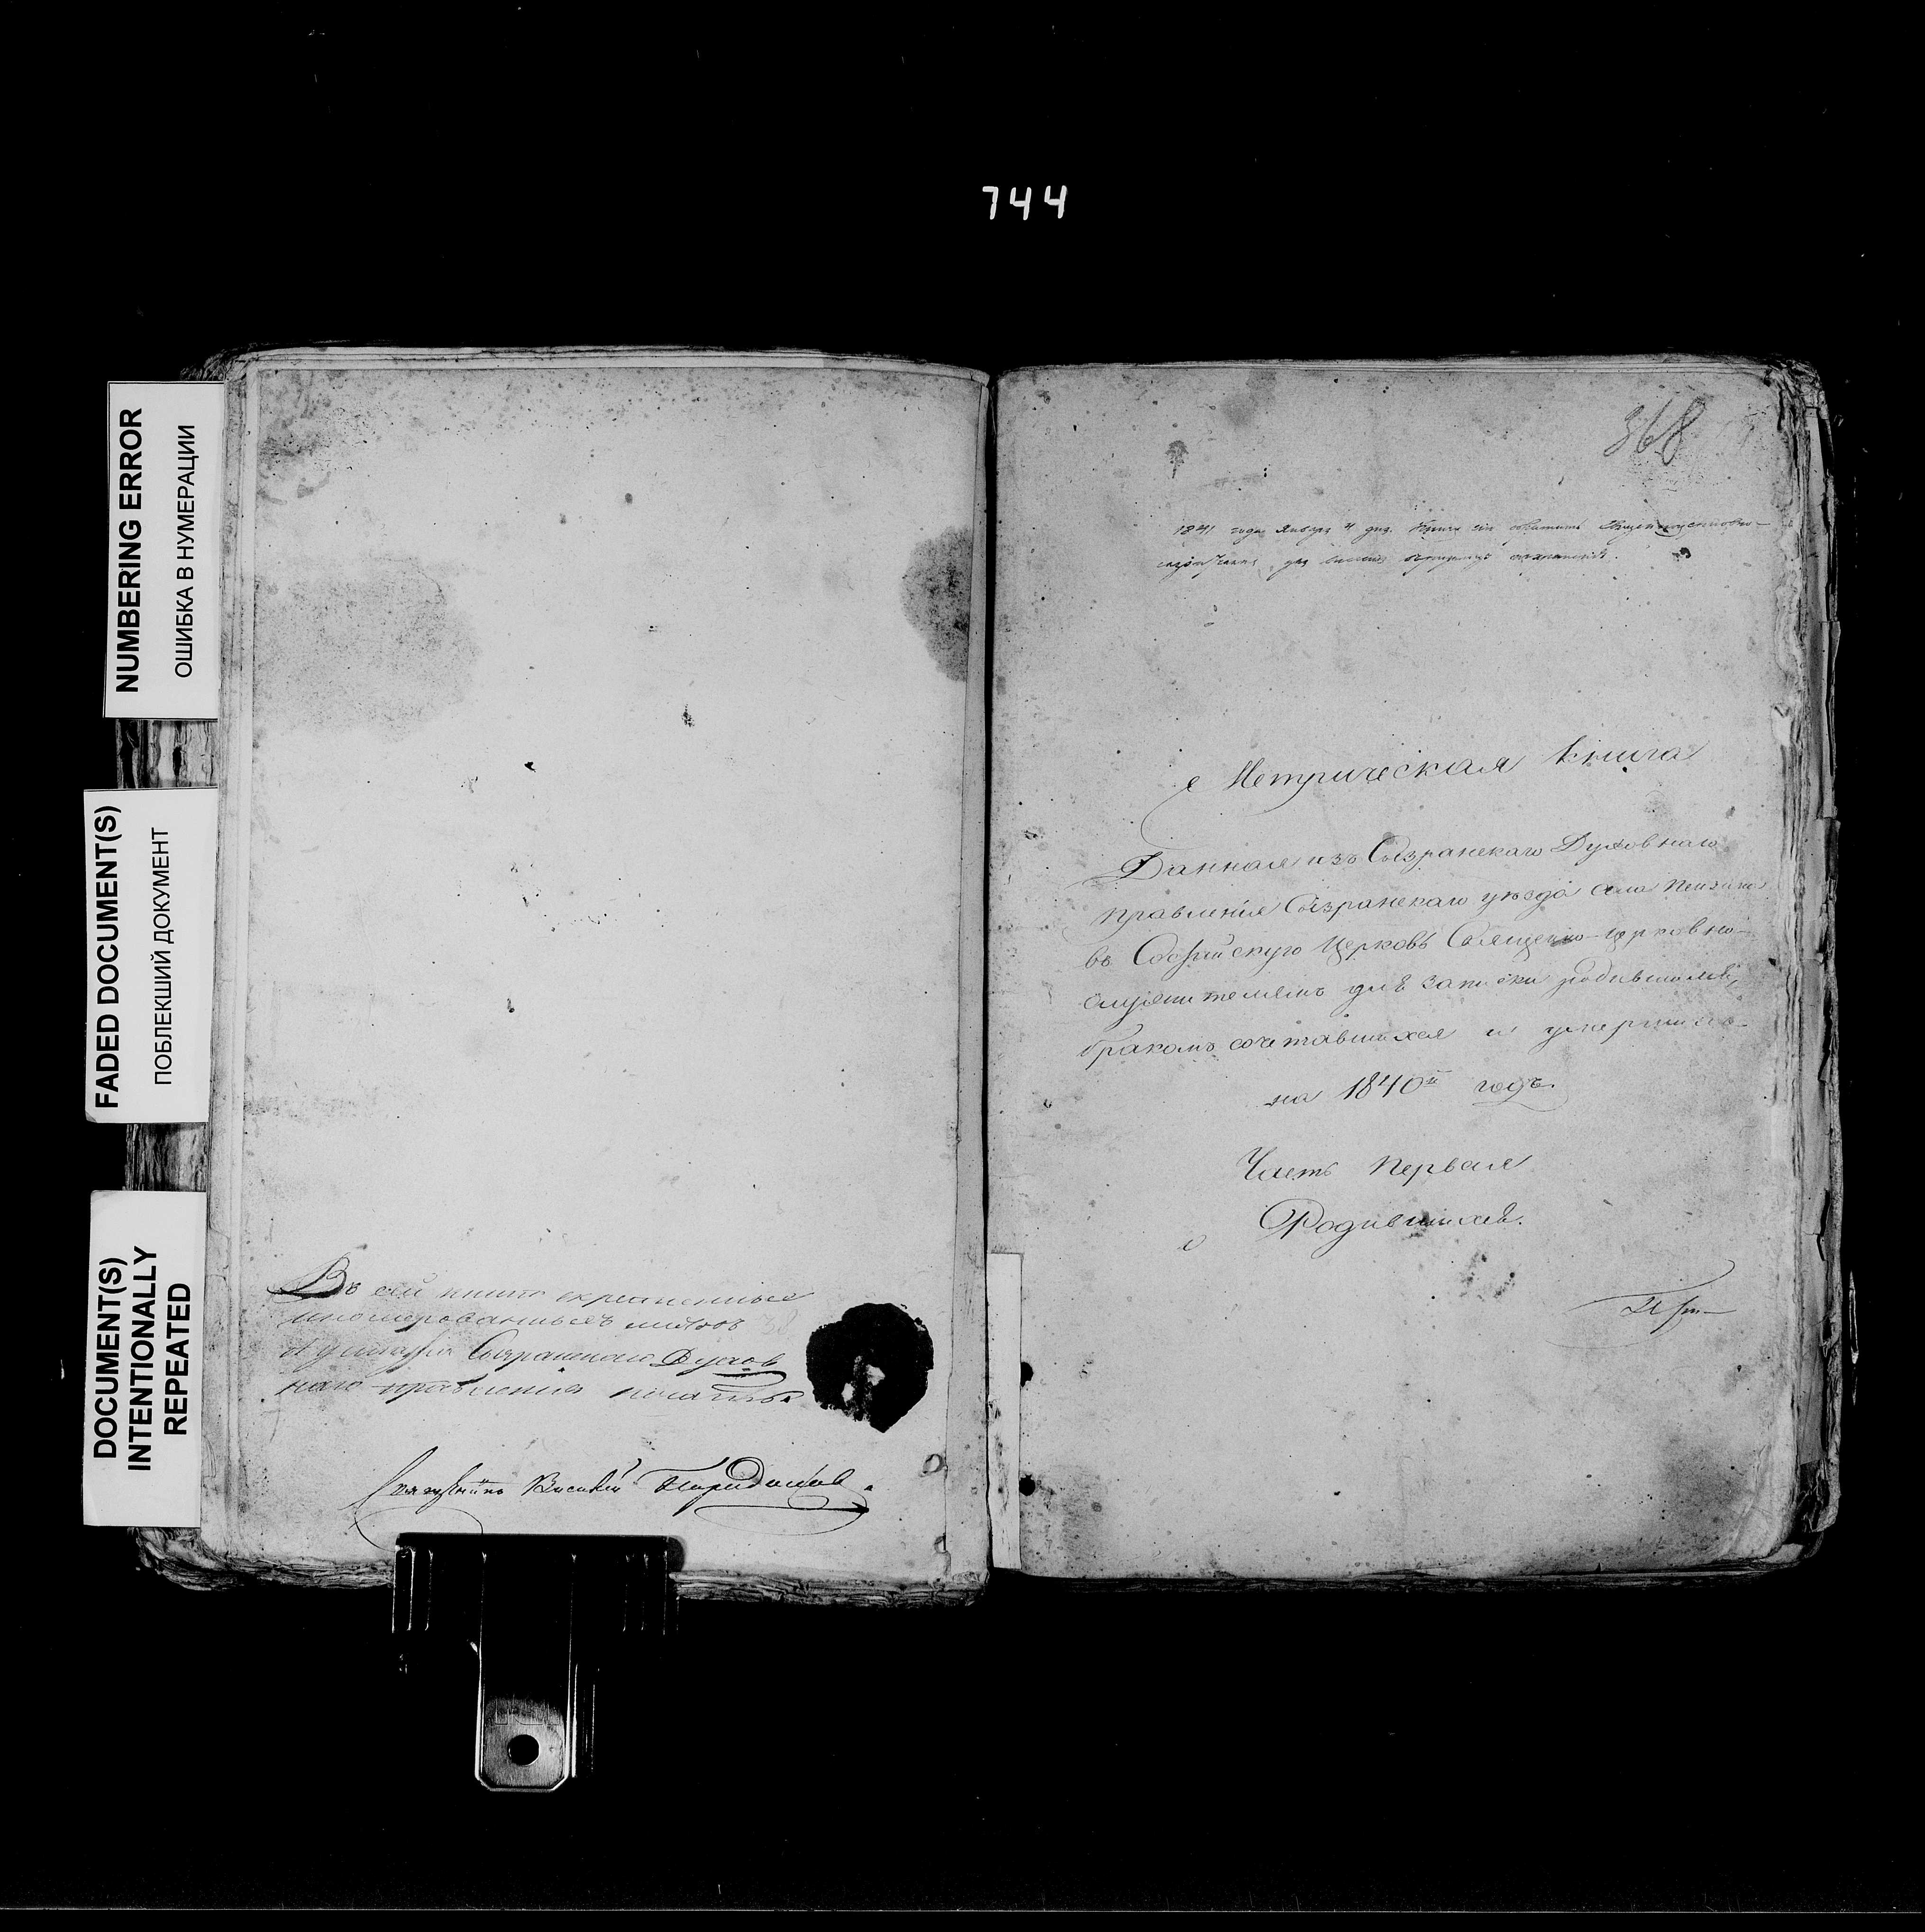 744
NUMBERING ERROR
ОШИБКА В НУМЕРАЦИИ
FADED DOCUMENT(S)
ПОБЛЕКШИЙ ДОКУМЕНТ
DOCUMENT(S)
INTENTIONALLY
REPEATED
Въ сей книге скрепленныхъ
иномерованныхъ листовъ 38
Сызранскаго Духов
наго правления печатью.
Василий
368
1841 года Января 4 дня. Книга сия
Метрическая книга
Данная изъ Сызранскаго Духовнаго
правления Сызранскаго уезда села
въ Софийскую Церковь Священно-церковно-
служителямъ для записки родившихся,
бракомъ сочетавшихся и умершихъ
на 1840й годъ.
Часть Первая
о Родившихся.